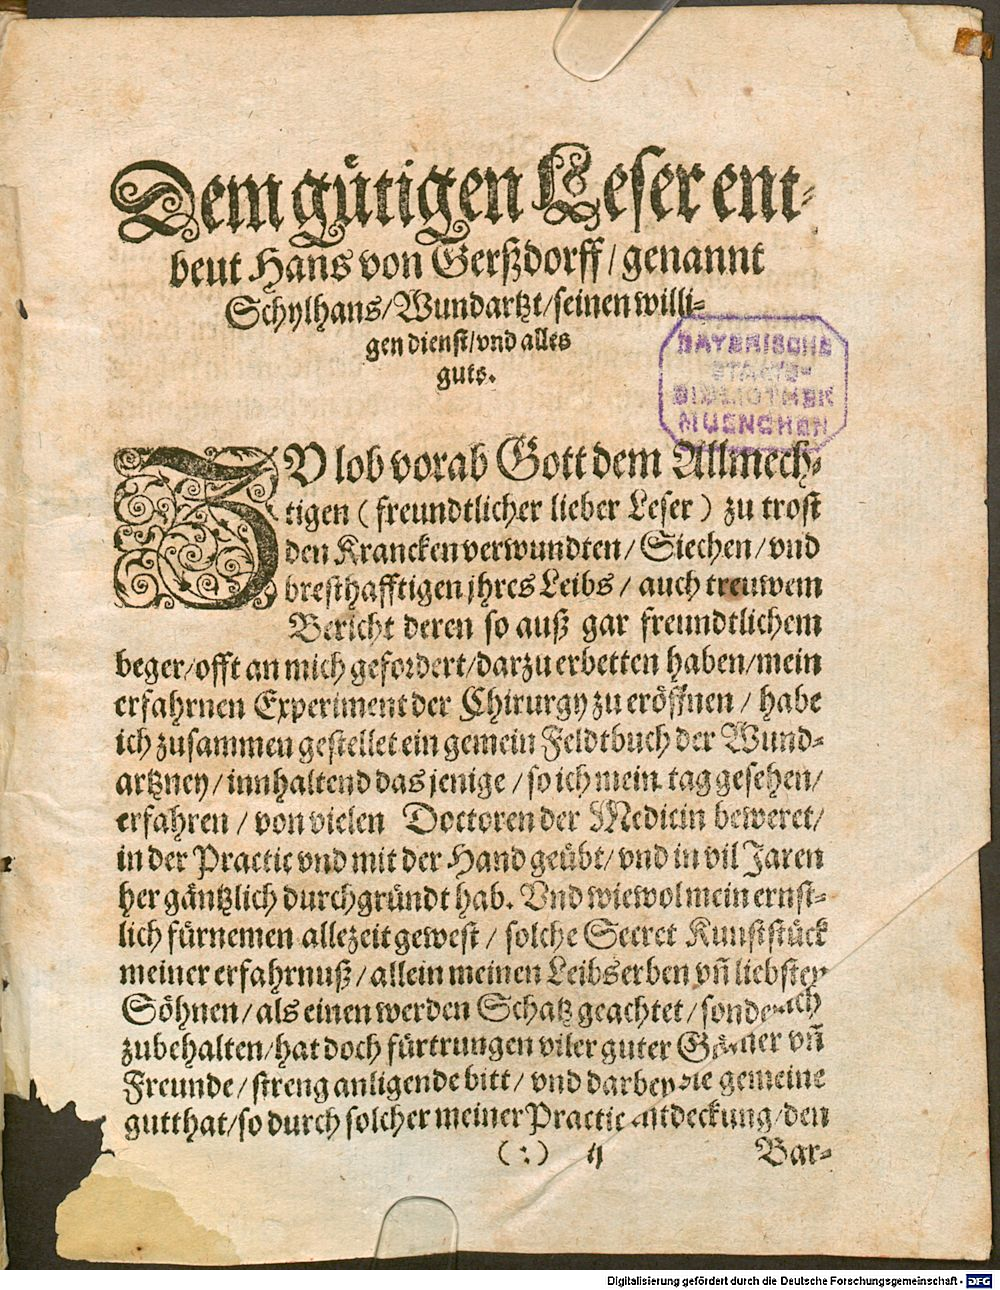 Dem gütigen Leser ent-
beut Hans von Gerßdorff/genannt
Schylhans/Wundartzt/seinen willi-
gen dienst/vnd alles
guts.
BAYERISCHE
STAATS-
BIBLIOTHEK
MUENCHEN
ZV lob vorab Gott dem Allmech-
tigen (freundtlicher lieber Leser) zu trost
den Krancken verwundten/Siechen/vnd
bresthafftigen jhres Leibs/auch treuwem
Bericht deren so auß gar freundtlichem
beger/offt an mich gefordert/darzu erbetten haben/mein
erfahrnen Experiment der Chirurgy zu eröffnen/habe
ich zusammen gestellet ein gemein Feldtbuch der Wund-
artzney/innhaltend das jenige/so ich mein tag gesehen/
erfahren/von vielen Doctoren der Medicin beweret/
in der Practic vnd mit der Hand geübt/vnd in vil Jaren
her gäntzlich durchgründt hab. Vnd wiewol mein ernst-
lich fürnemen allezeit gewest/solche Secret Kunststück
meiner erfahrnuß/allein meinen Leibserben vñ liebsten
Söhnen/als einen werden Schatz geachtet/
zubehalten/hat doch fürtrungen viler guter Gönner vñ
Freunde/streng anligende bitt/vnd darbey die gemeine
gutthat/so durch solcher meiner Practic entdeckung/den
(:) ij Bar-
Digitalisierung gefördert durch die Deutsche Forschungsgemeinschaft - DFG